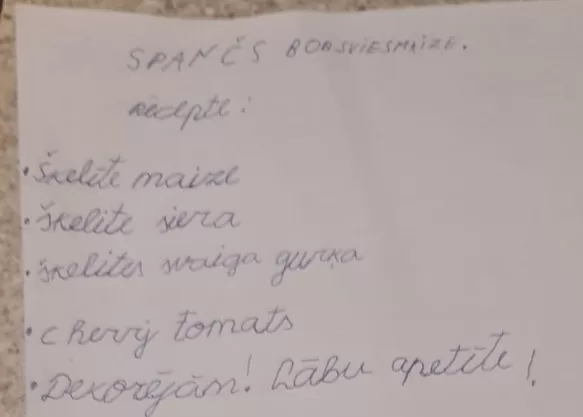 SPANČS BOBSVIESMAIZE.
Recepte:
• Šķelīte maize
• šķelīte siera
• šķelītes svaiga gurķa
• cherry tomats
• Dekorējam! Labu apetīte!